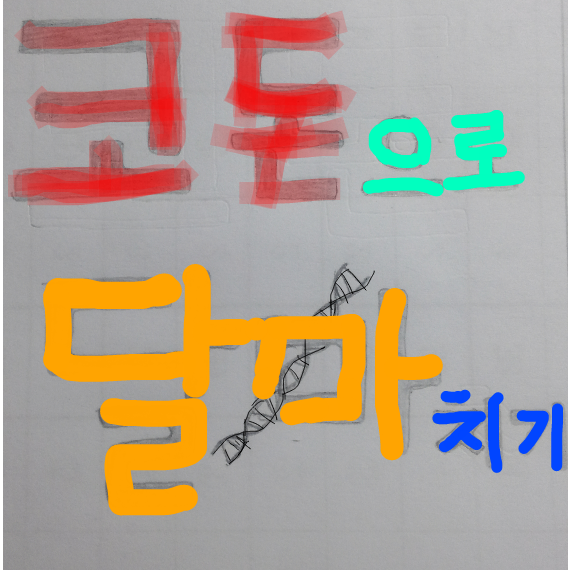 코돈으로
달마치기